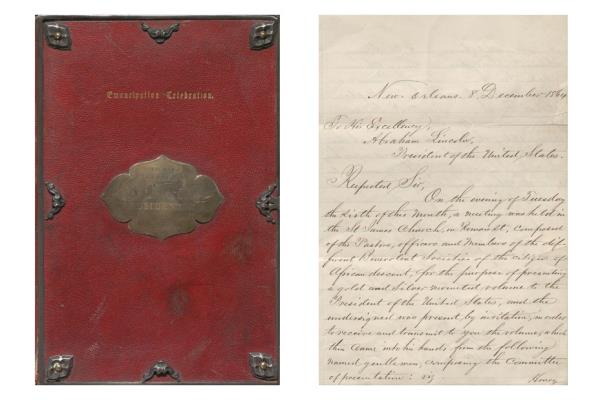 Emancipation Celebration.
New Orleans 8. December 1864
To His Excellency,
Abraham Lincoln,
President of the United States.
Respected Sir,
On the evening of Tuesday
the sixth of this Month, a meeting was held in
the St James Church, in Roman St, composed
of the Pastors, officers and Members of the dif-
ferent Benevolent Societies of the citizens of
African descent, for the purpose of presenting
a gold and silver mounted volume to the
President of the United States, and the
undersigned was present by invitation, in order
to receive and transmit to you the volume, which
then came into his hands from the following
named gentlemen, composing the Committee
of presentation: viz
Henry